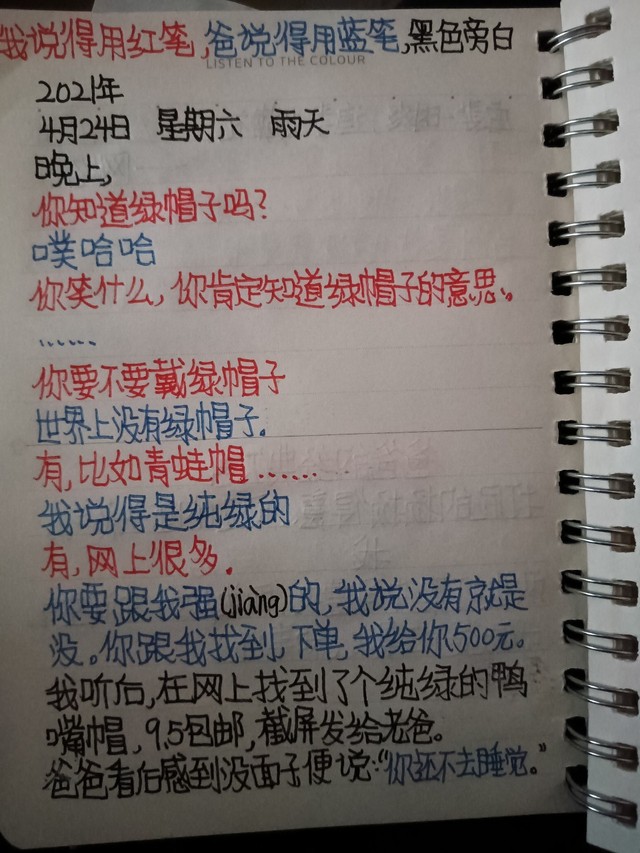 我说得用红笔,爸说得用蓝笔,黑色旁白
LISTEN TO THE COLOUR
2021年
4月24日 星期六 雨天
晚上,
你知道绿帽子吗?
噗哈哈
你笑什么,你肯定知道绿帽子的意思。
……
你要不要戴绿帽子
世界上没有绿帽子.
有,比如青蛙帽……
我说得是纯绿的
有,网上很多.
你要跟我强(jiàng)的,我说没有就是
没。你跟我找到,下单,我给你500元。
我听后,在网上找到了个纯绿的鸭
嘴帽,9.5包邮,截屏发给老爸。
爸爸看后感到没面子便说:“你还不去睡觉。”